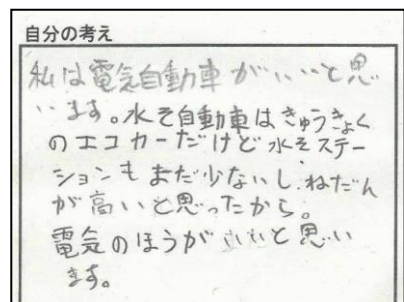 自分の考え
私は電気自動車がいいと思
います。水そ自動車はきゅうきょく
のエコカーだけど水そステー
ションもまだ少ないし、ねだん
が高いと思ったから。
電気のほうがいいと思い
ます。